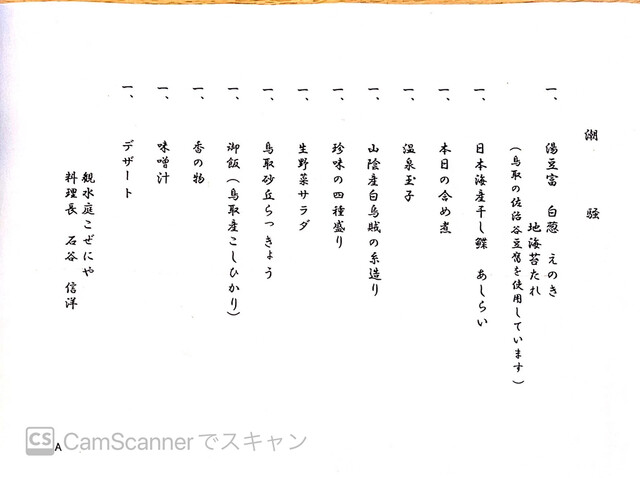 潮騒
一、湯豆富 白葱 えのき
地海苔たれ
(鳥取の佐治谷豆腐を使用しています)
一、日本海産干し鰈 あしらい
一、本日の含め煮
一、温泉玉子
一、山陰産白烏賊の糸造り
一、珍味の四種盛り
一、生野菜サラダ
一、鳥取砂丘らっきょう
一、御飯(鳥取産こしひかり)
一、香の物
一、味噌汁
一、デザート
観水庭こぜにや
料理長 石谷 信洋
A
CS CamScannerでスキャン